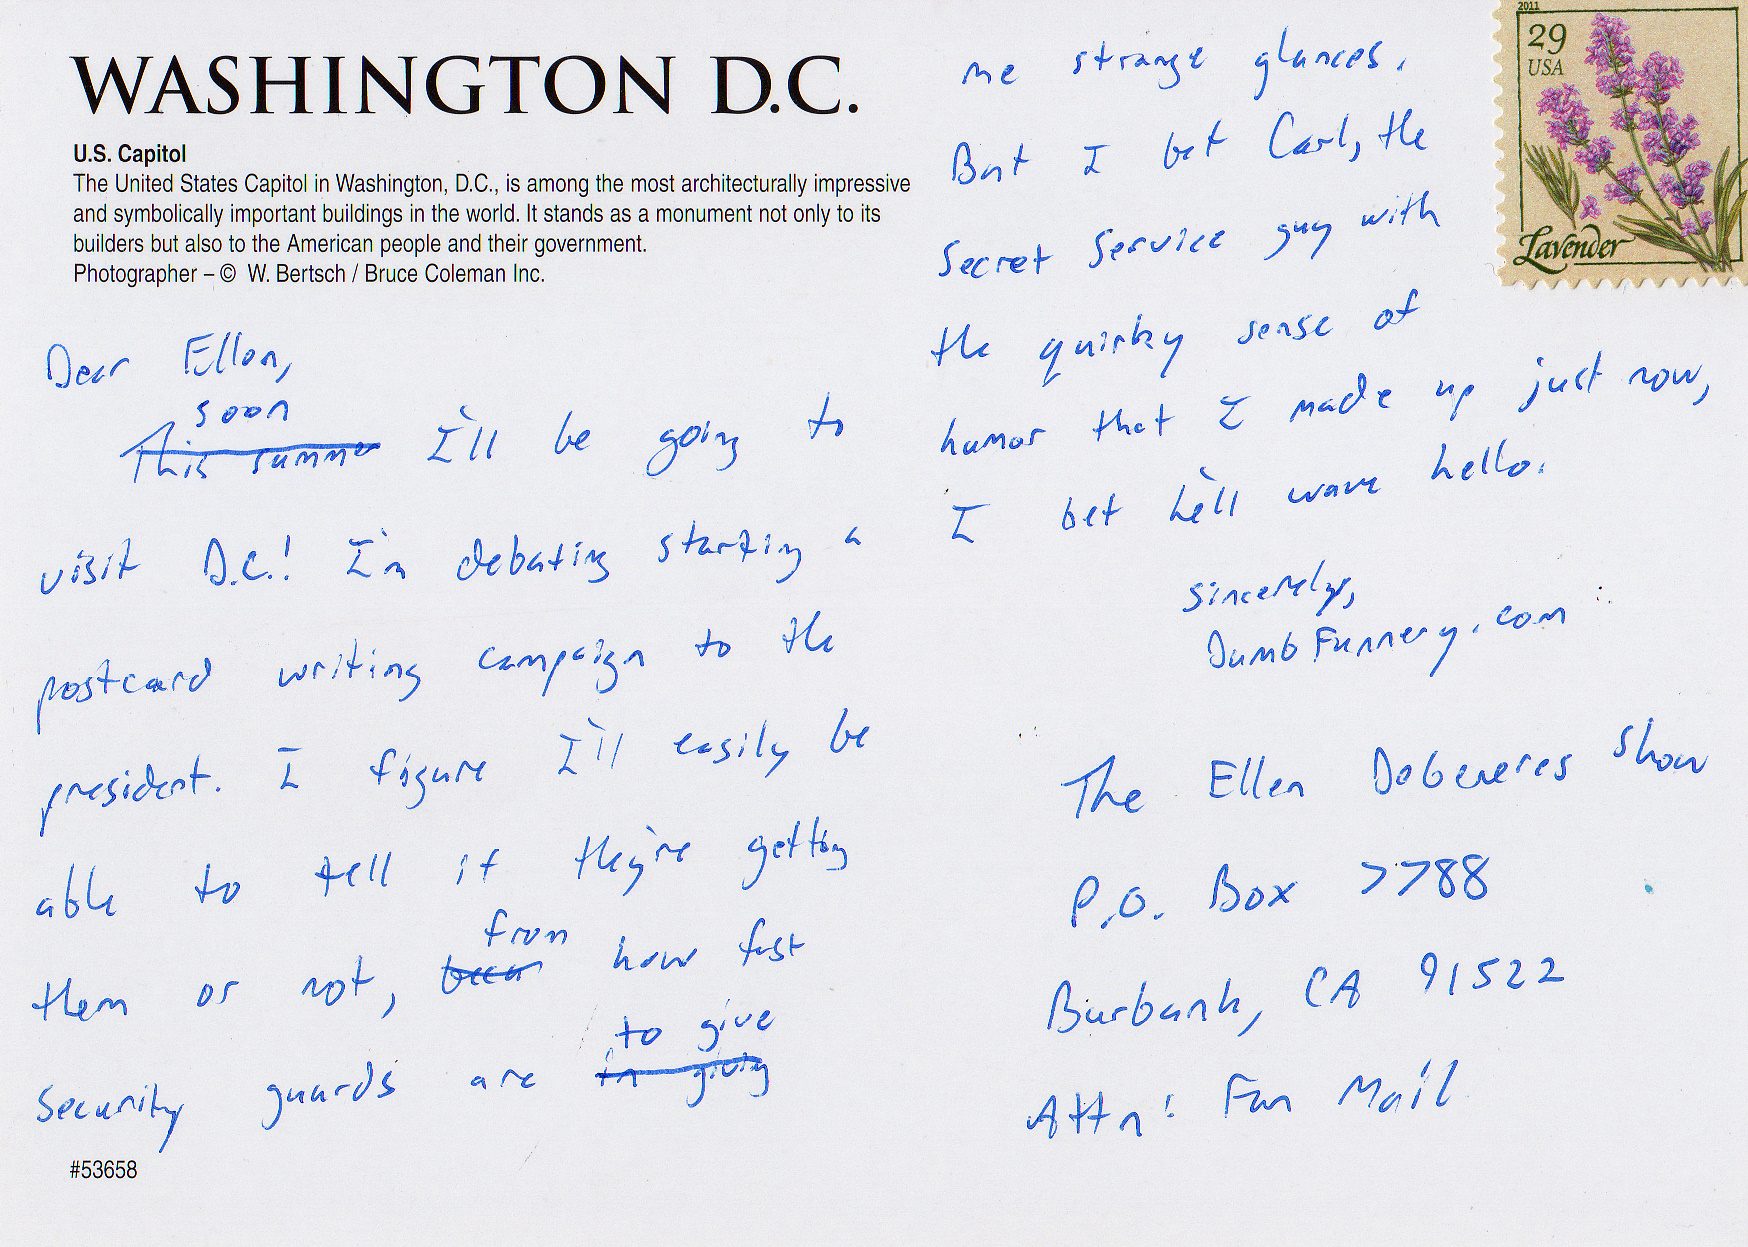 WASHINGTON D.C.
U.S. Capitol
The United States Capitol in Washington, D.C., is among the most architecturally impressive
and symbolically important buildings in the world. It stands as a monument not only to its
builders but also to the American people and their government.
Photographer – © W. Bertsch / Bruce Coleman Inc.
Dear Ellen,
soon
This summer I'll be going to
visit D.C.! I'm debating starting a
postcard writing campaign to the
president. I figure I'll easily be
able to tell if they're getting
from
them or not, been how fast
to give
security guards are in giving
#53658
me strange glances.
But I bet Carl, the
Secret Service guy with
the quirky sense of
humor that I made up just now,
I bet he'll wave hello.
Sincerely,
DumbFunnery.com
2011
29
USA
Lavender
The Ellen Degeneres Show
P.O. Box 7788
Burbank, CA 91522
Attn: Fan Mail